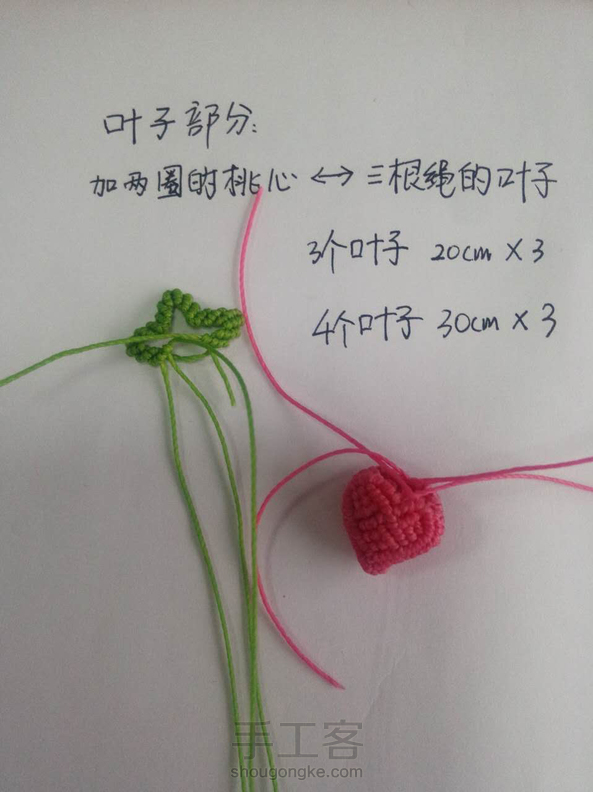 叶子部分：
加两圈的桃心 ↔ 三根绳的叶子
3个叶子 20cm × 3
4个叶子 30cm × 3
手工客
shougongke.com